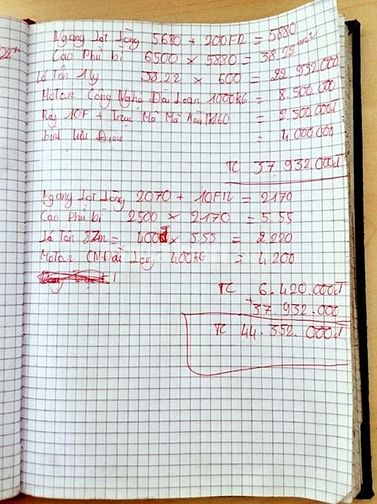 Ngang Lọt Lòng 5680 + 200FR = 5880
Cao Phủ bì 6500 × 5880 = 38,22 m2
Lá Tôn 1ly 38.22 × 600 = 22.932.000đ
Motor Công Nghệ Đài Loan 1000KG = 8.500.000
Ray 10F + Trục = 2.500.000đ
Bình Lưu Điện = 4.000.000
TC 37.932.000đ
Ngang Lọt Lòng 2070 + 10FR = 2170
Cao phủ bì 2500 × 2170 = 5.55
Lá Tôn = 400đ × 5.55 = 2.220
Motor CN Đài Loan 400KG = 4.200
TC 6.420.000đ
+ 37.932.000
TC 44.352.000đ